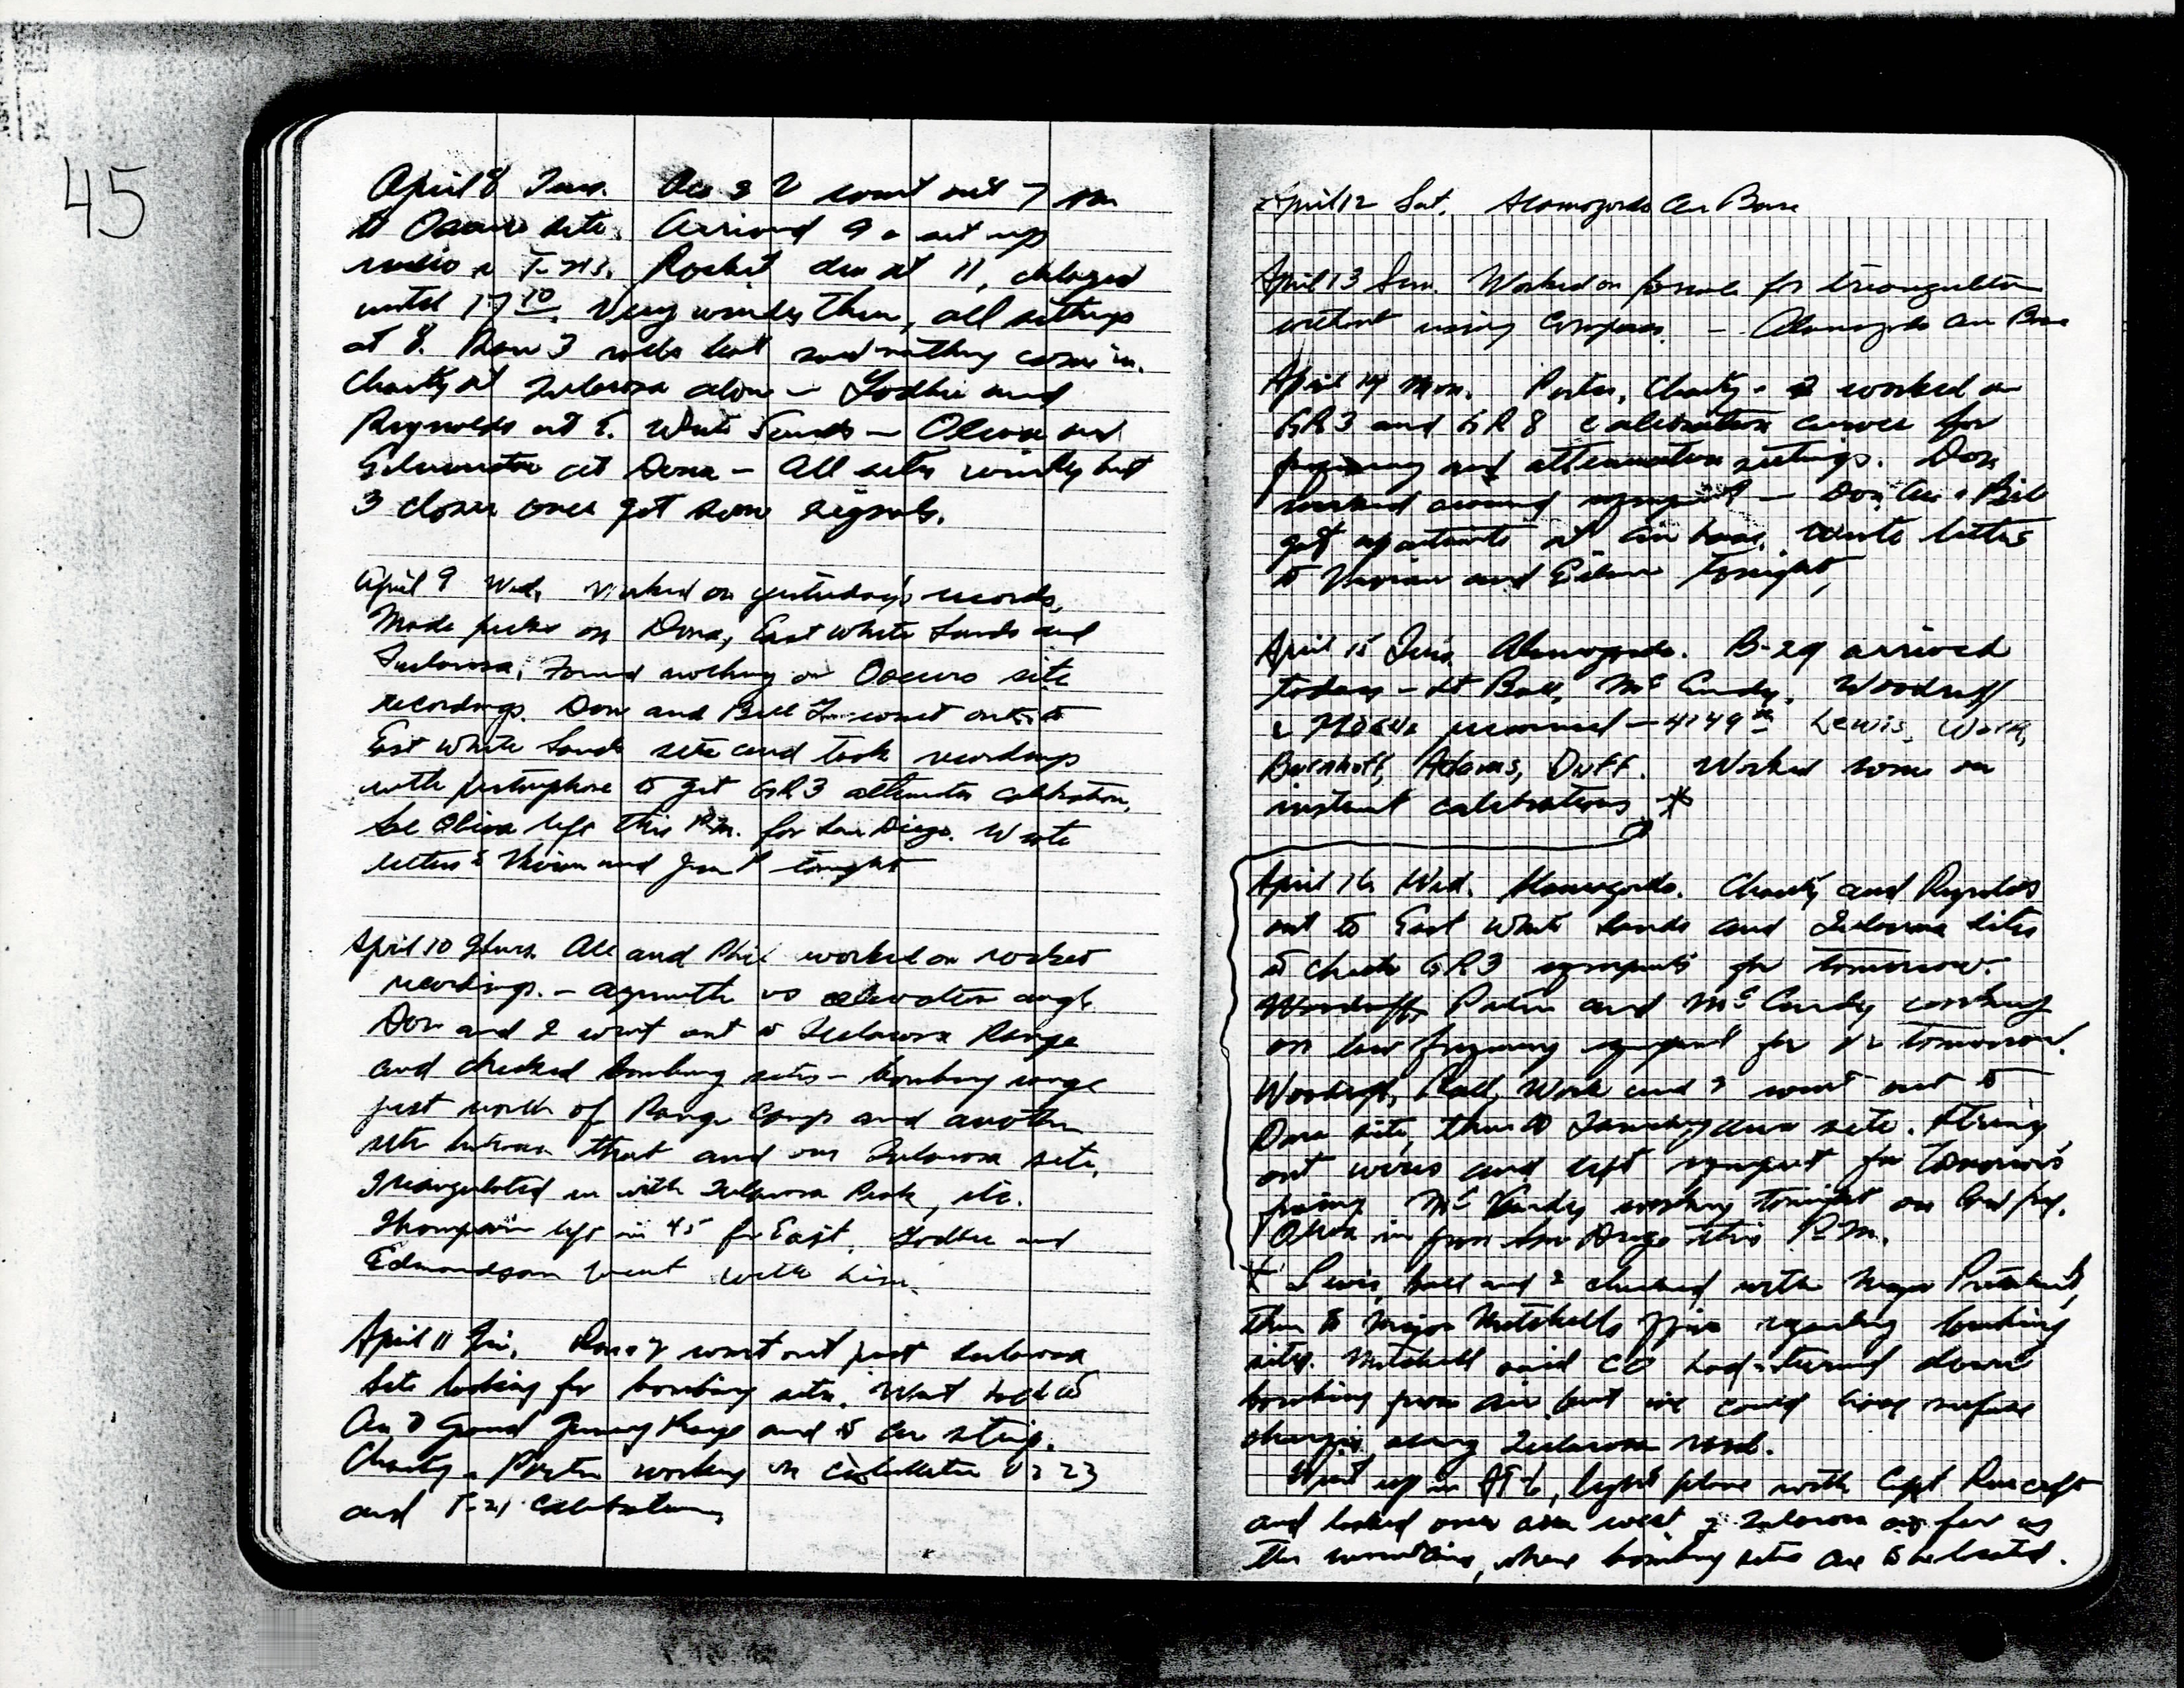 45
April 8 Tues. Ace & I went out 7 am
to Oscuro site. Arrived 9 & set up
radio & T-21B. Rocket due at 11, delayed
until 17 10. Very windy then, all settings
at 8. Ran 3 rolls but saw nothing come in.
Charity at Tularosa alone — Godbee and
Reynolds at E. White Sands — Olivia and
Edmondson at Dona — All sites windy but
3 closer ones got some signals.
April 9 Wed. Worked on yesterday's records.
Made picks on Dona, East White Sands and
Tularosa. Found nothing on Oscuro site
recordings. Don and Bill went out to
East White Sands site and took recordings
with pistonphone to get GR3 attenuator calibration.
Sol Olivia left this P.M. for San Diego. Wrote
letters to Vivian and tonight
April 10 Thurs. Ace and Phil worked on rocket
recordings. — azimuth vs elevation angle.
Don and I went out to Tularosa Range
and checked bombing sites — bombing range
just north of Range Camp and another
site between that and our Tularosa site.
Triangulated in with Tularosa Peak, etc.
Thompson left in 45 for East. Godbee and
Edmondson went with him.
April 11 Fri. Don & I went out past Tularosa
Site looking for bombing sites. Went back to
Air to Ground Gunnery Range and to air strip.
Charity & Porter working on calibration
and T-21 calibrations.
April 12 Sat. Alamogordo Air Base
April 13 Sun. Worked on formula for triangulation
without using compass. — Alamogordo Air Base
April 14 Mon. Porter, Charity & I worked on
GR3 and GR8 calibration curves for
frequency and attenuation settings. Don
worked around equipment — Don, Ace & Bill
got apartments at air base. Wrote letters
to Vivian and Eileen tonight.
April 15 Tues. Alamogordo. B-29 arrived
today — Lt Ball, McCurdy, Woodruff
& Moore personnel — 4149th Lewis, Work,
Adams, Duff. Worked some on
instrument calibrations *
April 16 Wed. Alamogordo. Charity and Reynolds
out to East White Sands and Tularosa sites
to check GR3 equipment for tomorrow.
Woodruff, Porter and McCurdy working
on low frequency equipment for V2 tomorrow.
Woodruff, Ball, Work and I went out to
Dona site, then to area site. String
out wires and left equipment for tomorrow's
firing. McCurdy working tonight on low freq.
Olivia in from San Diego this P.M.
* Lewis, Ball and I checked with Major Pritchard,
then to Major Mitchells office regarding bombing
sites. Mitchell said CO had turned down
bombing from air but we could use surface
charges along Tularosa road.
Went up in AT-6, light plane with Capt
and looked over area west of Tularosa as far as
the mountains, where bombing sites are to be located.